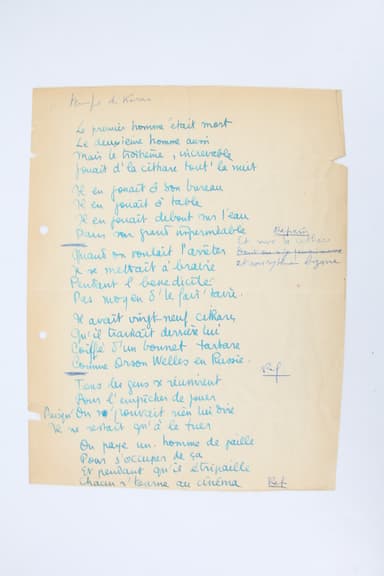 Le premier homme était mort
Le deuxième homme aussi
Mais le troisième, increvable
Jouait d'la cithare tout' la nuit
Il en jouait à son bureau
Il en jouait à table
Il en jouait debout sur l'eau
Dans son grand imperméable
Refrain
Et avec la cithare
Et son rythme bizarre
Quand on voulait l'arrêter
Il se mettait à braire
Pendant l'bénédicité
Pas moyen d'le fair' taire.
Il avait vingt-neuf cithares
Qu'il trainait derrière lui
Coiffé d'un bonnet tartare
Comme Orson Welles en Russie.
Ref
Tous les gens se réunirent
Pour l'empêcher de jouer
Puisqu' On n' pouvait rien lui dire
Il ne restait qu'à le tuer
On paye un homme de paille
Pour s'occuper de ça
Et pendant qu'il étripaille
Chacun s'tourne au cinéma
Ref